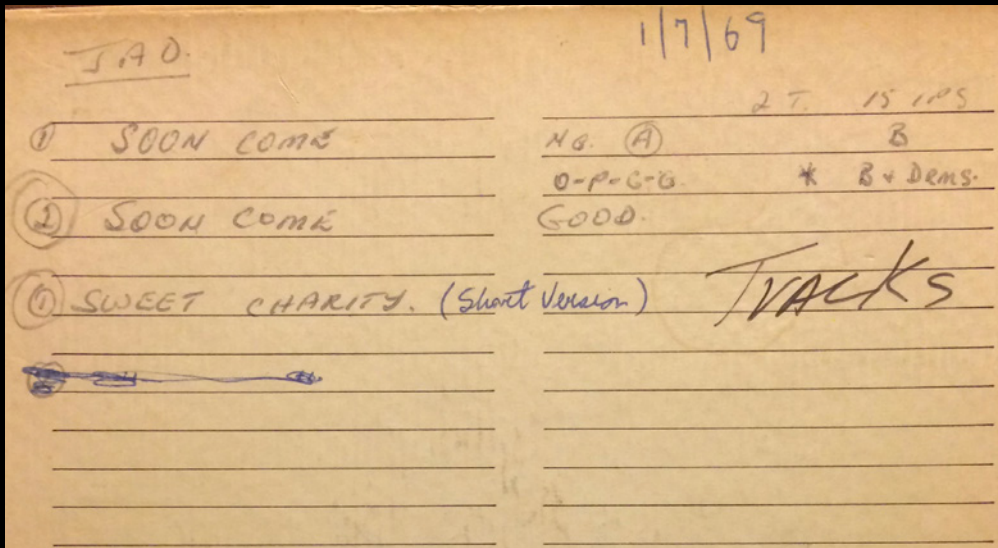 J.A.D.
1/7/69
2 T. 15 IPS
① SOON COME N.G. Ⓐ B
O-P-G-O. * B + DRMS.
② SOON COME GOOD.
TRACKS
① SWEET CHARITY. (Short Version)